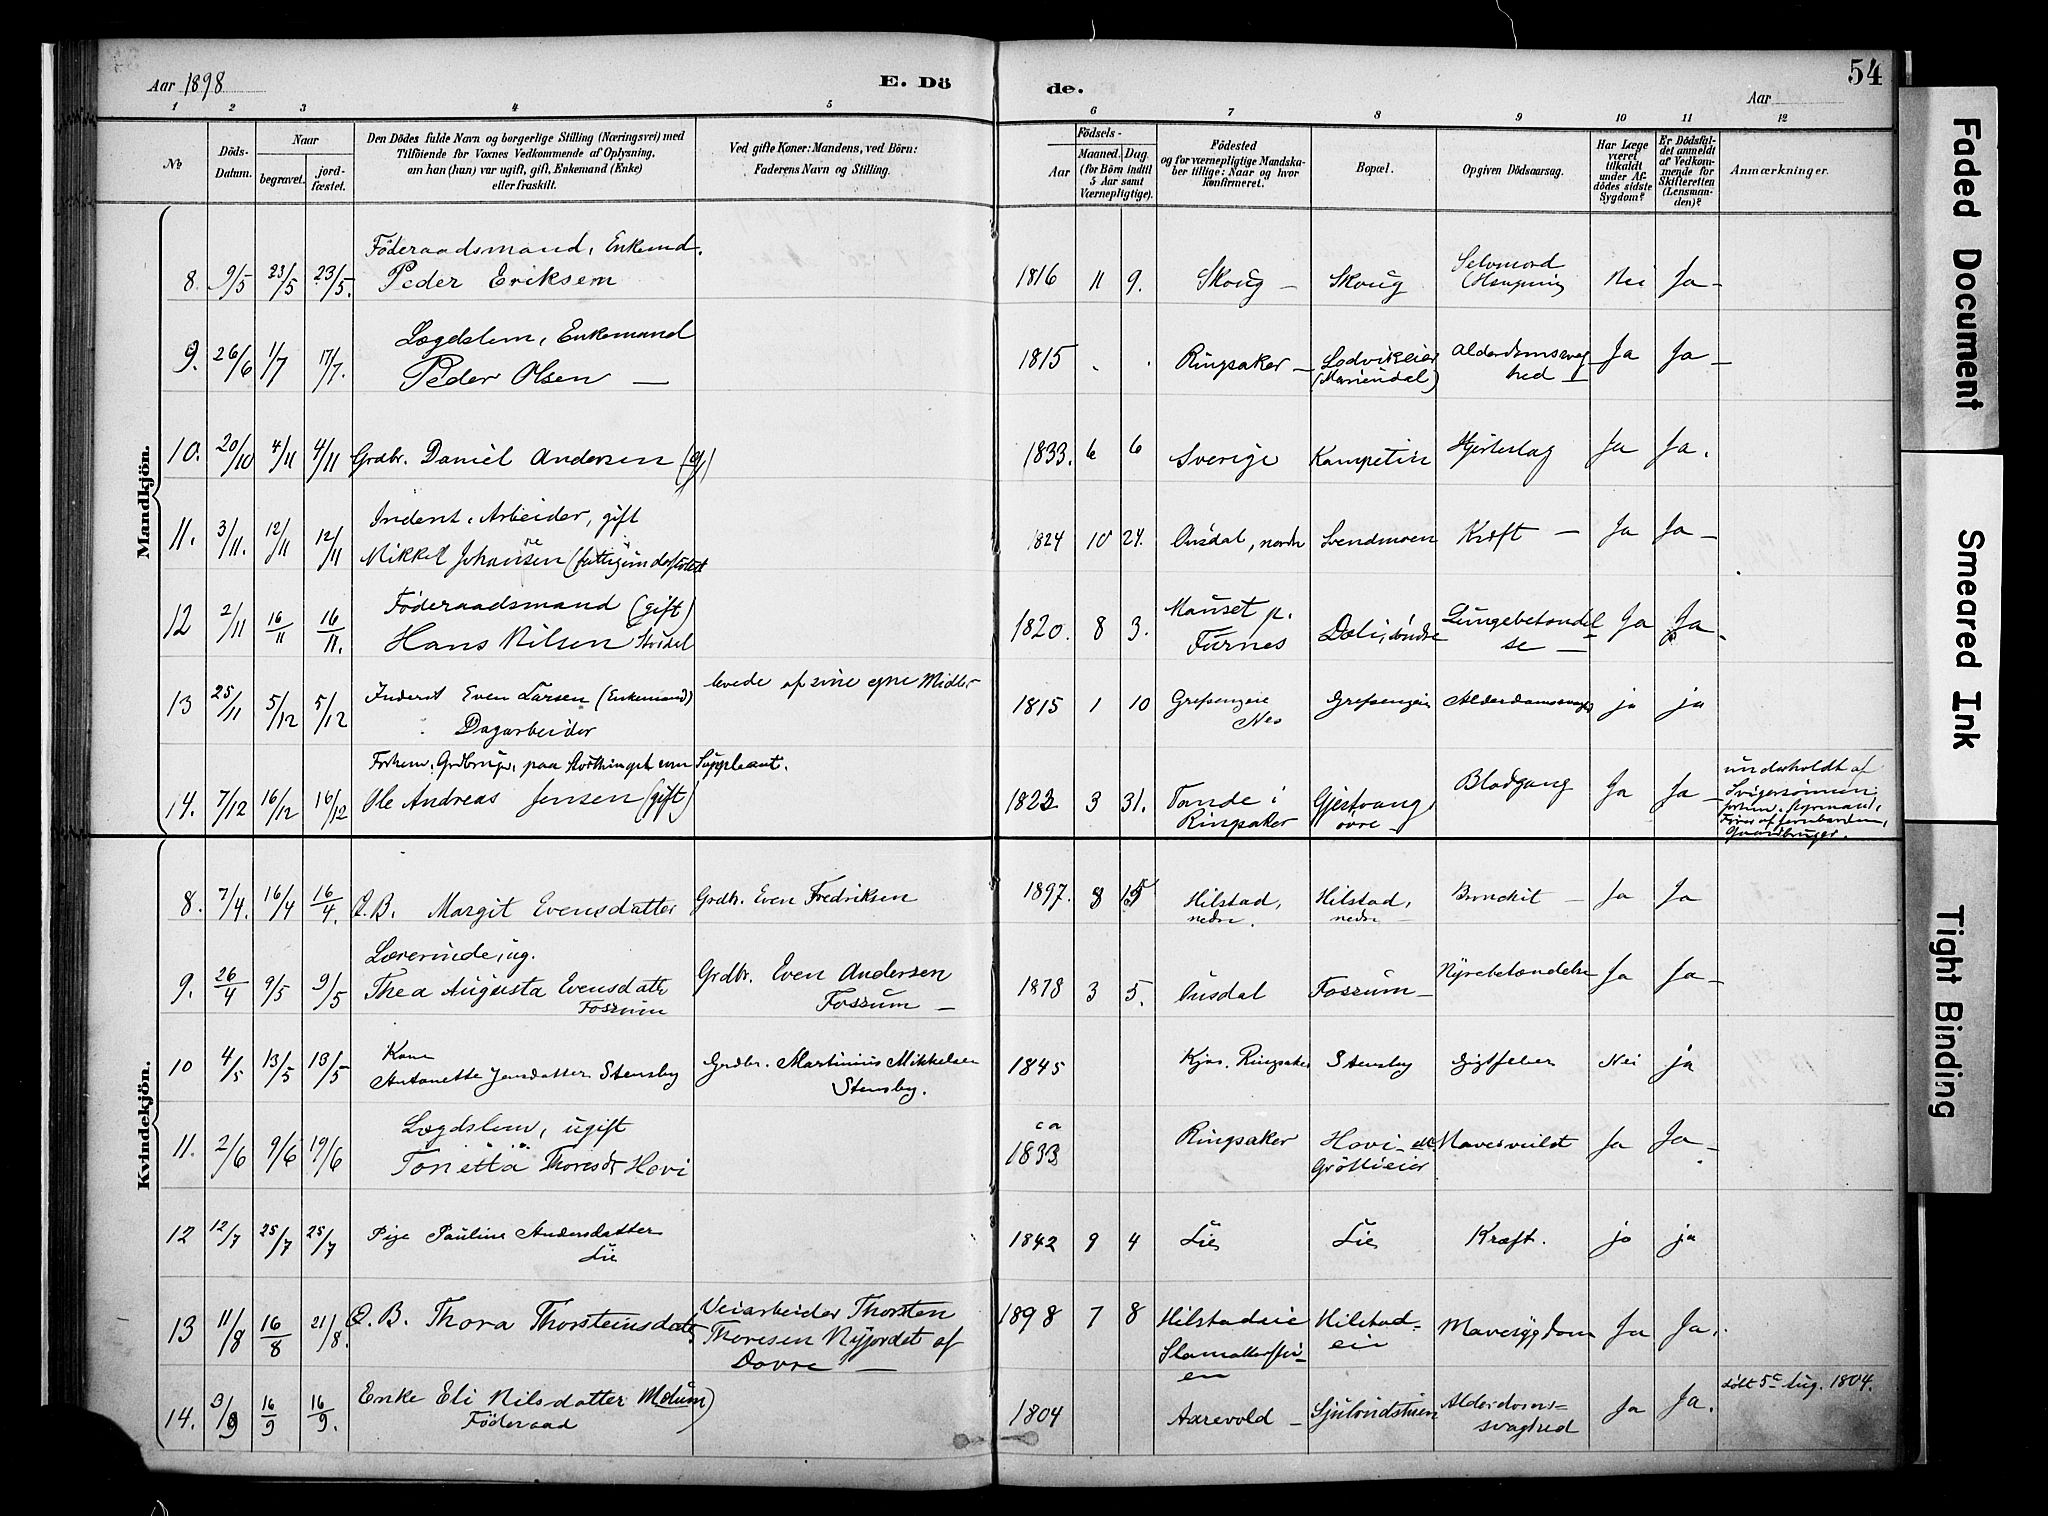 Aar 1898
E. Dö
de.
Aar
54
1 2 3 4 5 6 7 8 9 10 11 12
No
Döds-Datum.
Naar
begravet.
jordfæstet.
Den Dödes fulde Navn og borgerlige Stilling (Næringsvei) med
Tilföiende for Voxnes Vedkommende af Oplysning,
om han (hun) var ugift, gift, Enkemand (Enke)
eller fraskilt.
Ved gifte Koner: Mandens, ved Börn:
Faderens Navn og Stilling.
Födsels-
Aar
Maaned. Dag.
(for Börn indtil
5 Aar samt
Værnepligtige).
Födested
og for værnepligtige Mandskaber tillige: Naar og hvor konfirmeret.
Bopæl.
Opgiven Dödsaarsag.
Har Læge været tilkaldt under Afdödes sidste Sygdom?
Er Dödsfaldet anmeldt af Vedkommende for Skifteretten (Lensmanden)?
Anmærkninger.
Mandkjön.
Föderaadsmand, Enkemd.
8. 9/5 23/5 23/5. Peder Eriksen 1816 11 9. Skoug – Skoug Selvmord Nei Ja –
Lægdslem, Enkemand
9. 26/6 1/7 17/7. Peder Olsen — 1815 Ringsaker – Lodvikeier (Mariendal) Alderdomssvaghed – Ja Ja –
10. 20/10 4/11 4/11 Grdbr. Daniel Andersen (g) 1833. 6 6 Sverige Kampetin Hjerteslag Ja Ja.
Inderst, Arbeider, gift
11. 3/11. 12/11 12/11 Mikkel Johansen 1824 10 24. Svendmoen Kræft – Ja Ja –
Föderaadsmand (gift)
12 2/11 16/11 16/11. Hans Nilsen 1820. 8 3. Furnes Dæli, söndre Lungebetændelse – Ja Ja –
13 25/11 5/12 5/12 Inderst Even Larsen (Enkemand) levede af sine egne Midler 1815 1 10 Nes ja ja
Dagarbeider
Forhem. Grdbruger, paa Storthinget som Suppleant.
14. 7/12 16/12 16/12 Ole Andreas Jensen (gift) 1823 3 31. Tande i Ringsaker Gjestvang övre – Blodgang Ja Ja –
underholdt af
Svigersönnen
Gaardbruger.
Kvindekjön.
8. 7/4. 16/4 16/4. Æ.B. Margit Evensdatter Grdbr. Even Fredriksen 1897. 8 15 Hilstad, nedre. Hilstad, nedre – Bronchit – Ja Ja
Lærerinde, ug.
9. 26/4 9/5 9/5 Thea Augusta Evensdatter Fossum Grdbr. Even Andersen Fossum – 1878 3 5. Fossum – Nyrebetændelse Ja Ja –
Kone
10 4/5 13/5 13/5 Antonette Jensdatter Stensby Grdbr. Martinius Mikkelsen Stensby. 1845 Ringsaker Stensby Gigtfeber Nei ja
Lægdslem, ugift
11. 2/6 9/6 19/6 Thoresd. Hovi ca 1833 Ringsaker Hovi Ja Ja –
12 12/7 25/7 25/7 Pige Pauline Andersdatter Lie 1842 9 4 Lie Lie Kræft. ja ja
13 11/8 16/8 21/8. Æ.B. Thora Thorsteinsdatter Veiarbeider Thorsten Thoresen Nyjordet af Dovre — 1898 7 8 Hilstadeie Hilstadeie Mavesygdom Ja Ja.
14. 3/9 16/9 16/9. Enke Eli Nilsdatter Melum) 1804 Aarevold – Alderdomssvaghed Ja Ja. födt 5te Aug. 1804.
Föderaad
Faded Document
Smeared Ink
Tight Binding